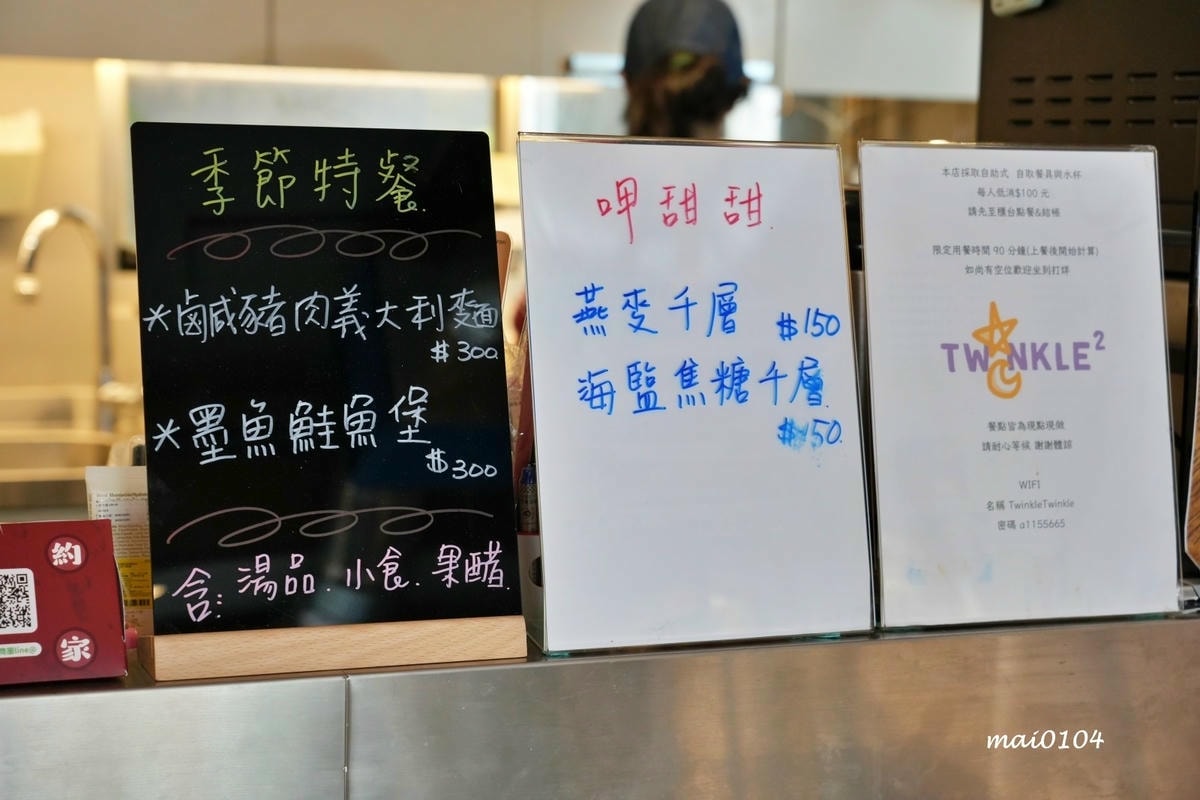 季節特餐
*鹹豬肉義大利麵
$300
*墨魚鮭魚堡
$300
含:湯品.小食.果醋.
呷甜甜
燕麥千層 $150
海鹽焦糖千層
$150.
本店採取自助式 自取餐具與水杯
每人低消$100元
請先至櫃台點餐&結帳
限定用餐時間 90 分鐘(上餐後開始計算)
如尚有空位歡迎坐到打烊
TWINKLE²
餐點皆為現點現做
請耐心等候 謝謝體諒
WIFI
名稱 TwinkleTwinkle
密碼 a1155665
約
家
line@
mai0104